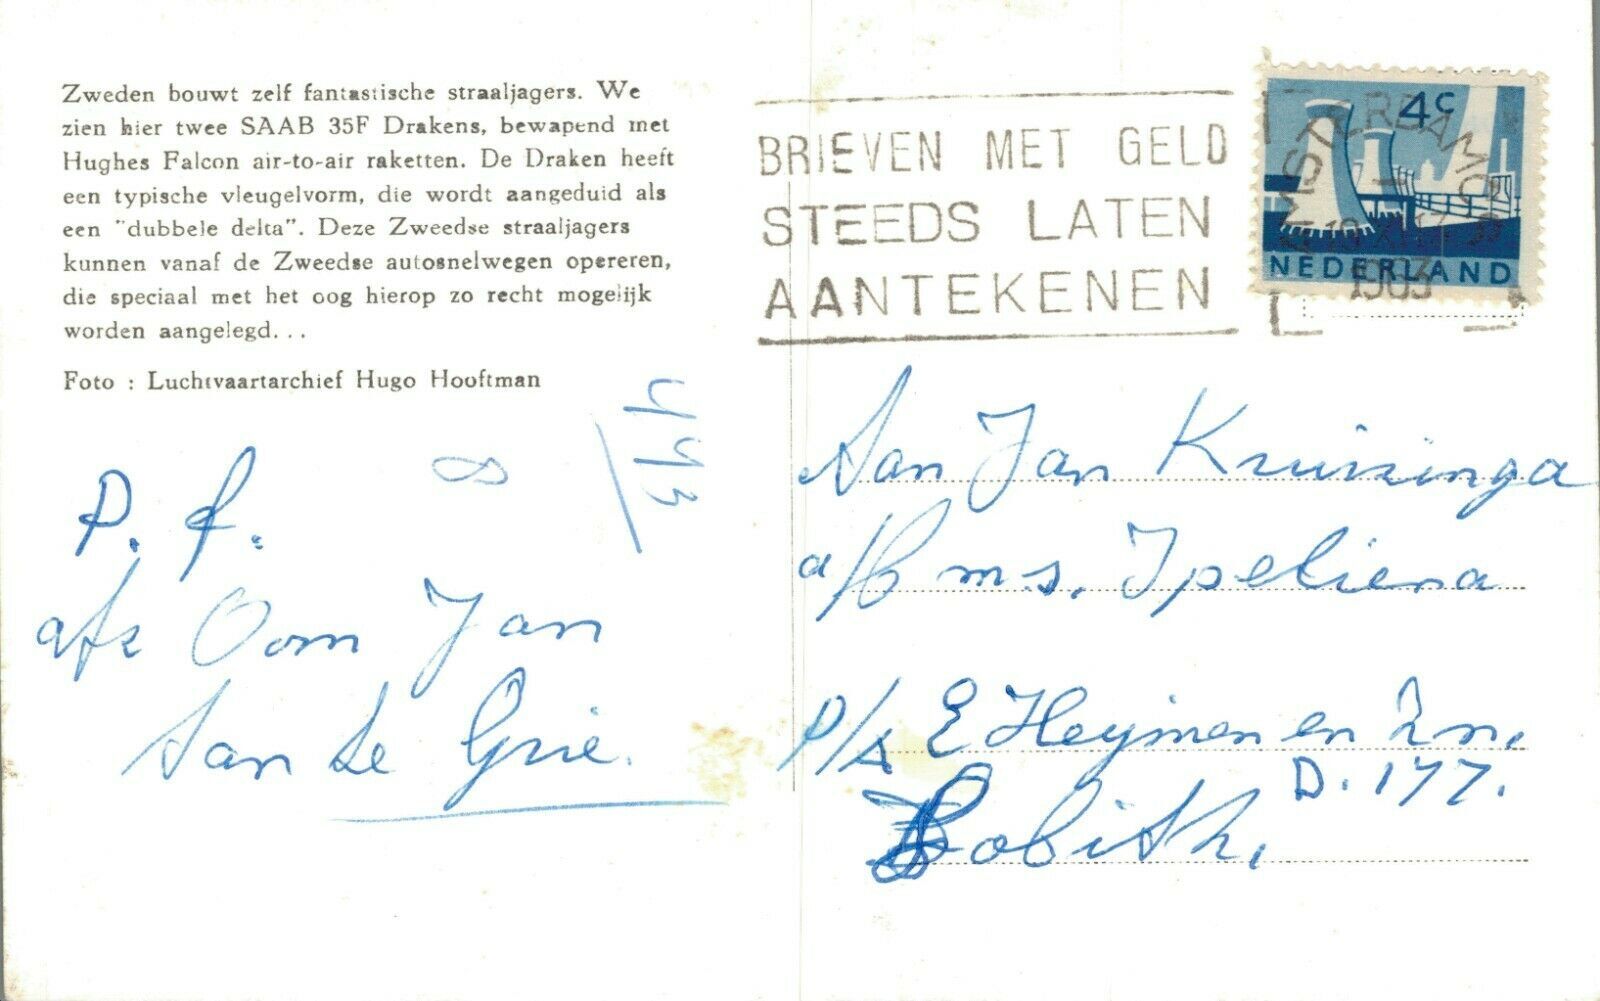 Zweden bouwt zelf fantastische straaljagers. We
zien hier twee SAAB 35F Drakens, bewapend met
Hughes Falcon air-to-air raketten. De Draken heeft
een typische vleugelvorm, die wordt aangeduid als
een "dubbele delta". Deze Zweedse straaljagers
kunnen vanaf de Zweedse autosnelwegen opereren,
die speciaal met het oog hierop zo recht mogelijk
worden aangelegd...
Foto : Luchtvaartarchief Hugo Hooftman
P. f.
afz Oom Jan
Aan de Grie.
BRIEVEN MET GELD
STEEDS LATEN
AANTEKENEN
4c
NEDERLAND
AMSTERDAM CS
1963
Aan Jan Kruizinga
a/b ms. Ipeliena
p/a E Heijmen en Zn.
D. 177.
Lobith.